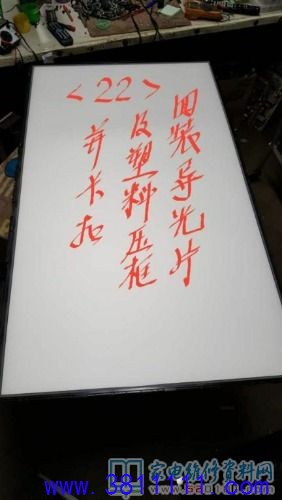 <22>
回装导光片
及塑料压框
并卡扣
家电维修资料网
www.3811111.com